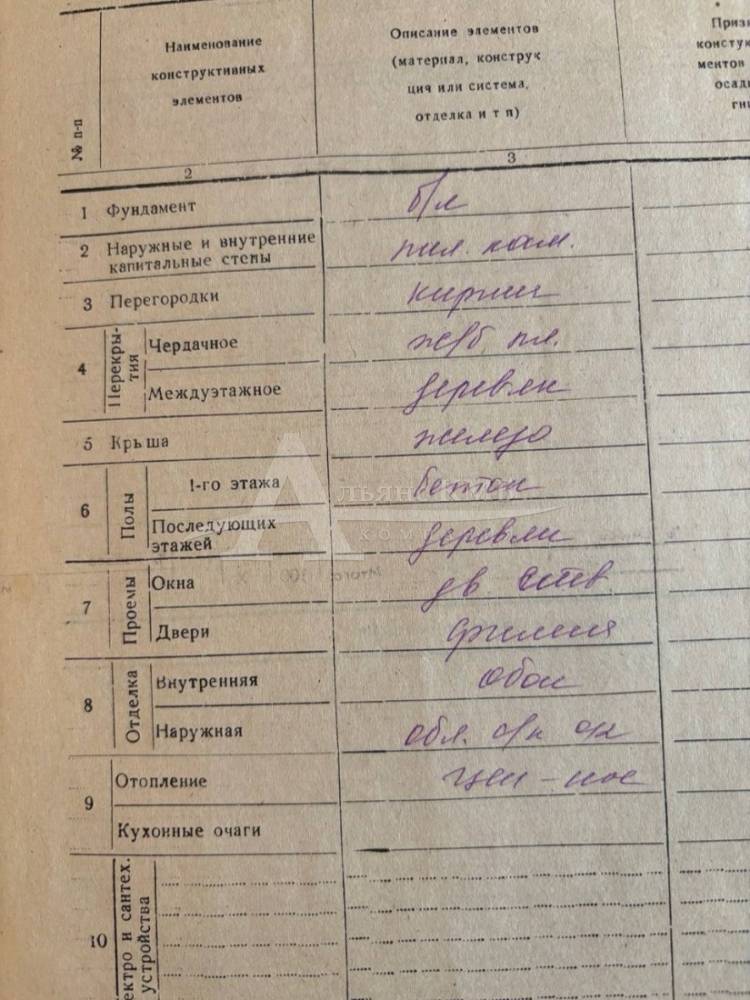 № п-п
Наименование
конструктивных
элементов
Описание элементов
(материал, конструк
ция или система,
отделка и т п)
Приз
констук
ментов
осад
гни
2
3
1 Фундамент б/л
2 Наружные и внутренние
капитальные стены пил. кам.
3 Перегородки кирпич
4 Перекры-
тия
Чердачное ж/б пл.
Междуэтажное деревян
5 Крыша железо
6 Полы
1-го этажа бетон
Последующих
этажей деревян
Альянс
7 Проемы
Окна дв ств
Двери
8 Отделка
Внутренняя обои
Наружная обл.
9 Отопление
Кухонные очаги —
10 ектро и сантех.
устройства